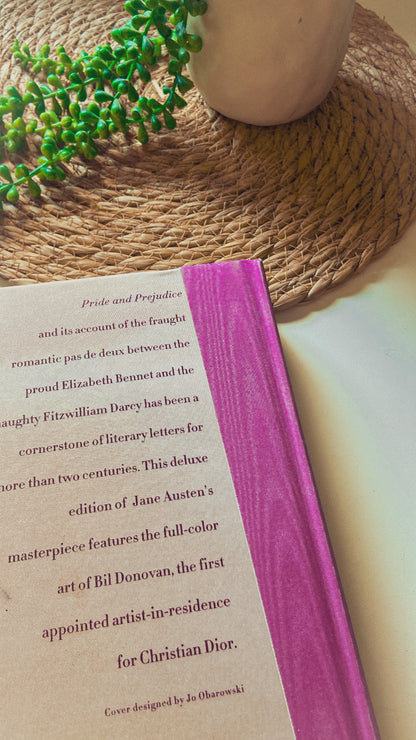 Pride and Prejudice
and its account of the fraught
romantic pas de deux between the
proud Elizabeth Bennet and the
naughty Fitzwilliam Darcy has been a
cornerstone of literary letters for
more than two centuries. This deluxe
edition of Jane Austen's
masterpiece features the full-color
art of Bil Donovan, the first
appointed artist-in-residence
for Christian Dior.
Cover designed by Jo Obarowski